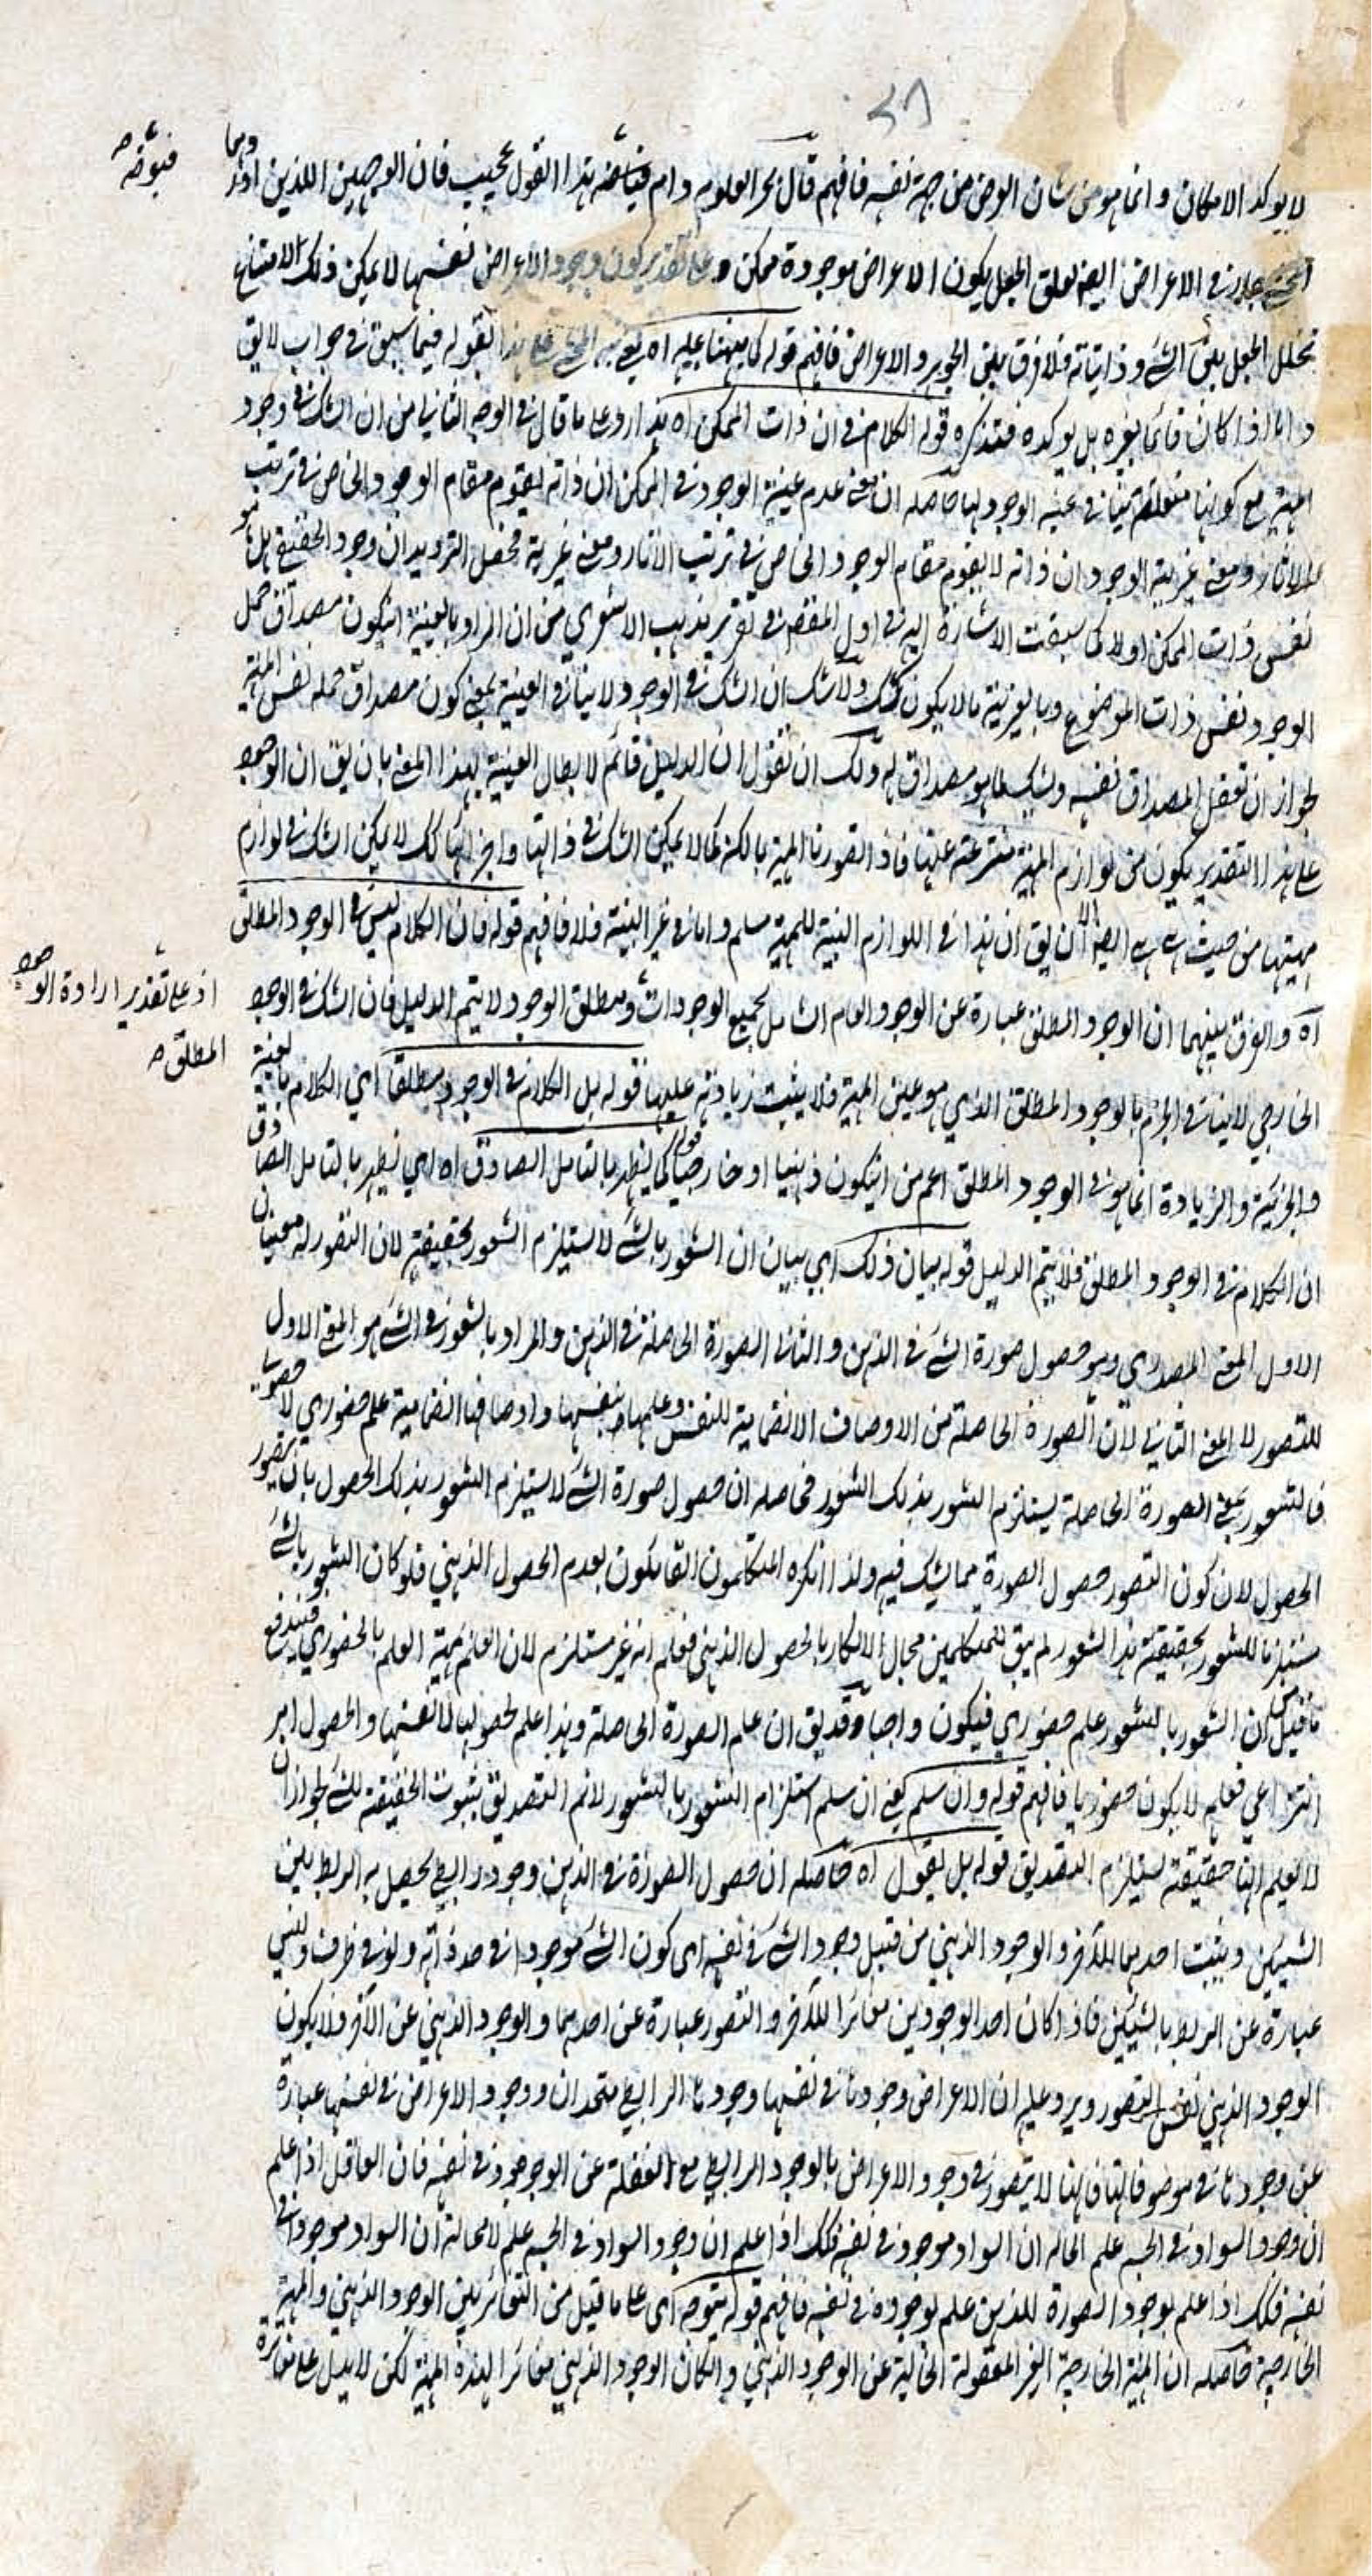 ٣٨
لا يوكد الامكان وانما هو من شان العرض من جهة نفسه فافهم قال بحر العلوم دام فياضه هذا القول عجيب فان الوجهين اللذين اورد
وهما
فيوضه صح
في الاعراض ايضا تعلق الجعل بكون الاعراض موجودة ممكن وعلى تقدير كون وجود الاعراض نفسها لا يمكن ذلك لامتناع
تخلل الجعل بين الشئ وذاتياته فلا فرق بين الجوهر والاعراض فافهم قوله كما نبهنا عليه اه يعني نبه المحشي على هذا بقوله فيما سبق في جواب لا يق
اذا كان قائما بغيره بل يوكده فتذكره قوله الكلام في ان ذات الممكن اه هذا رد على ما قال في الوجه الثاني من ان الشك في وجود
المهية مع كونها متعلقة ينافي عينية الوجود لها حاصله ان معنى عدم عينية الوجود في الممكن ان ذاته لا يقوم مقام الوجود الخاص في ترتب
الاثار ومعنى غيرية الوجود ان ذاته لا يقوم مقام الوجود الخاص في ترتب الاثار ومعنى غيرية فحصل الترديد ان وجود الحقيقي هل هو
نفس ذات الممكن او لا كما سبقت الاشارة اليه في اول المقصد في تقرير مذهب الاشعري من ان المراد بالعينية ان يكون مصداق حمل
الوجود نفس ذات الموضوع وبالغيرية ما لا يكون كذلك ولا شك ان الشك في الوجود لا ينافي العينية بمعنى كون مصداق حمله نفس المهية
لجواز ان تعقل المصداق نفسه ويشك فيما هو مصداق له ولك ان تقول ان الدليل قائم لابطال العينية بهذا المعنى بان يق ان الوجود
على هذا التقدير يكون من لوازم المهية منتزعة عنها فاذا تصورنا المهية بالكنه كما لا يمكن الشك في ذاتها واجزائها كك لا يمكن الشك في لوازم
مهيتها من حيث هي هي ايضا الا ان يق ان هذا في اللوازم البينة للمهية مسلم واما في غير البينة فلا فافهم قوله فان الكلام ليس في الوجود المطلق
اه والفرق بينهما ان الوجود المطلق عبارة عن الوجود العام الشامل لجميع الوجودات ومطلق الوجود لا يتم الدليل فان الشك في الوجود
اذ على تقدير ارادة الوجود
المطلق صح
الخارجي لا ينافي الجزم بالوجود المطلق الذي هو عين المهية فلا يثبت زيادته عليها قوله بل الكلام في الوجود مطلقا اي الكلام بالعينية
والجزئية والزيادة انما هو في الوجود المطلق اعم من ان يكون ذهنيا او خارجيا قوله كما يظهر بالتامل الصادق اه اي يظهر بالتامل الصادق
ان الكلام في الوجود المطلق فلا يتم الدليل قوله بيان ذلك اي بيان ان الشعور بالشئ لا يستلزم الشعور بحقيقته لان التصور له معنيان
الاول المعنى المصدري وهو حصول صورة الشئ في الذهن والثاني الصورة الحاصلة في الذهن والمراد بالشعور في الشئ هو المعنى الاول
للتصور لا المعنى الثاني لان الصورة الحاصلة من الاوصاف الانضمامية للنفس وعلمها بنفسها واوصافها انضمامية علم حضوري لا حصولي
فالشعور بمعنى الصورة الحاصلة يستلزم الشعور بذلك الشعور فحاصله ان حصول صورة الشئ لا يستلزم الشعور بذلك الحصول بان يتصور
الحصول لان كون التصور حصول الصورة مما يشك فيه ولذا انكره المتكلمون القائلون بعدم الحصول الذهني فلو كان الشعور بالشئ
مستلزما للشعور بحقيقة هذا الشعور لم يبق للمتكلمين مجال الانكار بالحصول الذهني فعلم انه غير مستلزم لان العلم بمهية العلم بالحضوري فيندفع
ما قيل ان الشعور بالشعور علم حضوري فيكون واجبا وقد يق ان علم الصورة الحاصلة وهذا علم لحصولها لا نفسها والحصول امر
انتزاعي فعلمه لا يكون حضوريا فافهم قوله وان سلم يعني ان سلم استلزام الشعور بالشعور لا نم التصديق بثبوت الحقيقة للشئ لجواز ان
لا يعلم انها حقيقته يستلزم التصديق قوله بل يقول اه حاصله ان حصول الصورة في الذهن وجود رابطي يحصل به الربط بين
الشيئين ويثبت احدهما للآخر والوجود الذهني من قبيل وجود الشئ في نفسه اي كون الشئ موجودا في حد ذاته ولو في ظرف وليس
عبارة عن الربط بالشيئين فاذا كان احد الوجودين مغائرا للآخر والتصور عبارة عن احدهما والوجود الذهني عن الآخر فلا يكون
الوجود الذهني نفس التصور ويرد عليه ان الاعراض وجودها في نفسها وجودها الرابطي متحدان ووجود الاعراض في نفسها عبارة
عن وجودها في موضوفاتها فهنا لا يتصور في وجود الاعراض بالوجود الرابطي مع الغفلة عن الوجود في نفسه فان العاقل اذا علم
ان وجود السواد في الجسم علم لا محالة ان السواد موجود في نفسه فكك اذا علم ان وجود السواد في الجسم علم لا محالة ان السواد موجودا في
نفسه فكك اذا علم بوجود الصورة للذهن علم بوجوده في نفسه فافهم قوله يتوجه اي على ما قيل من التغائر بين الوجود الذهني والمهية
الخارجية حاصله ان المهية الخارجية الغير المعقولة الخالية عن الوجود الذهني وان كان الوجود الذهني مغائرا لهذه المهية لكن لا يدل على مغائرة